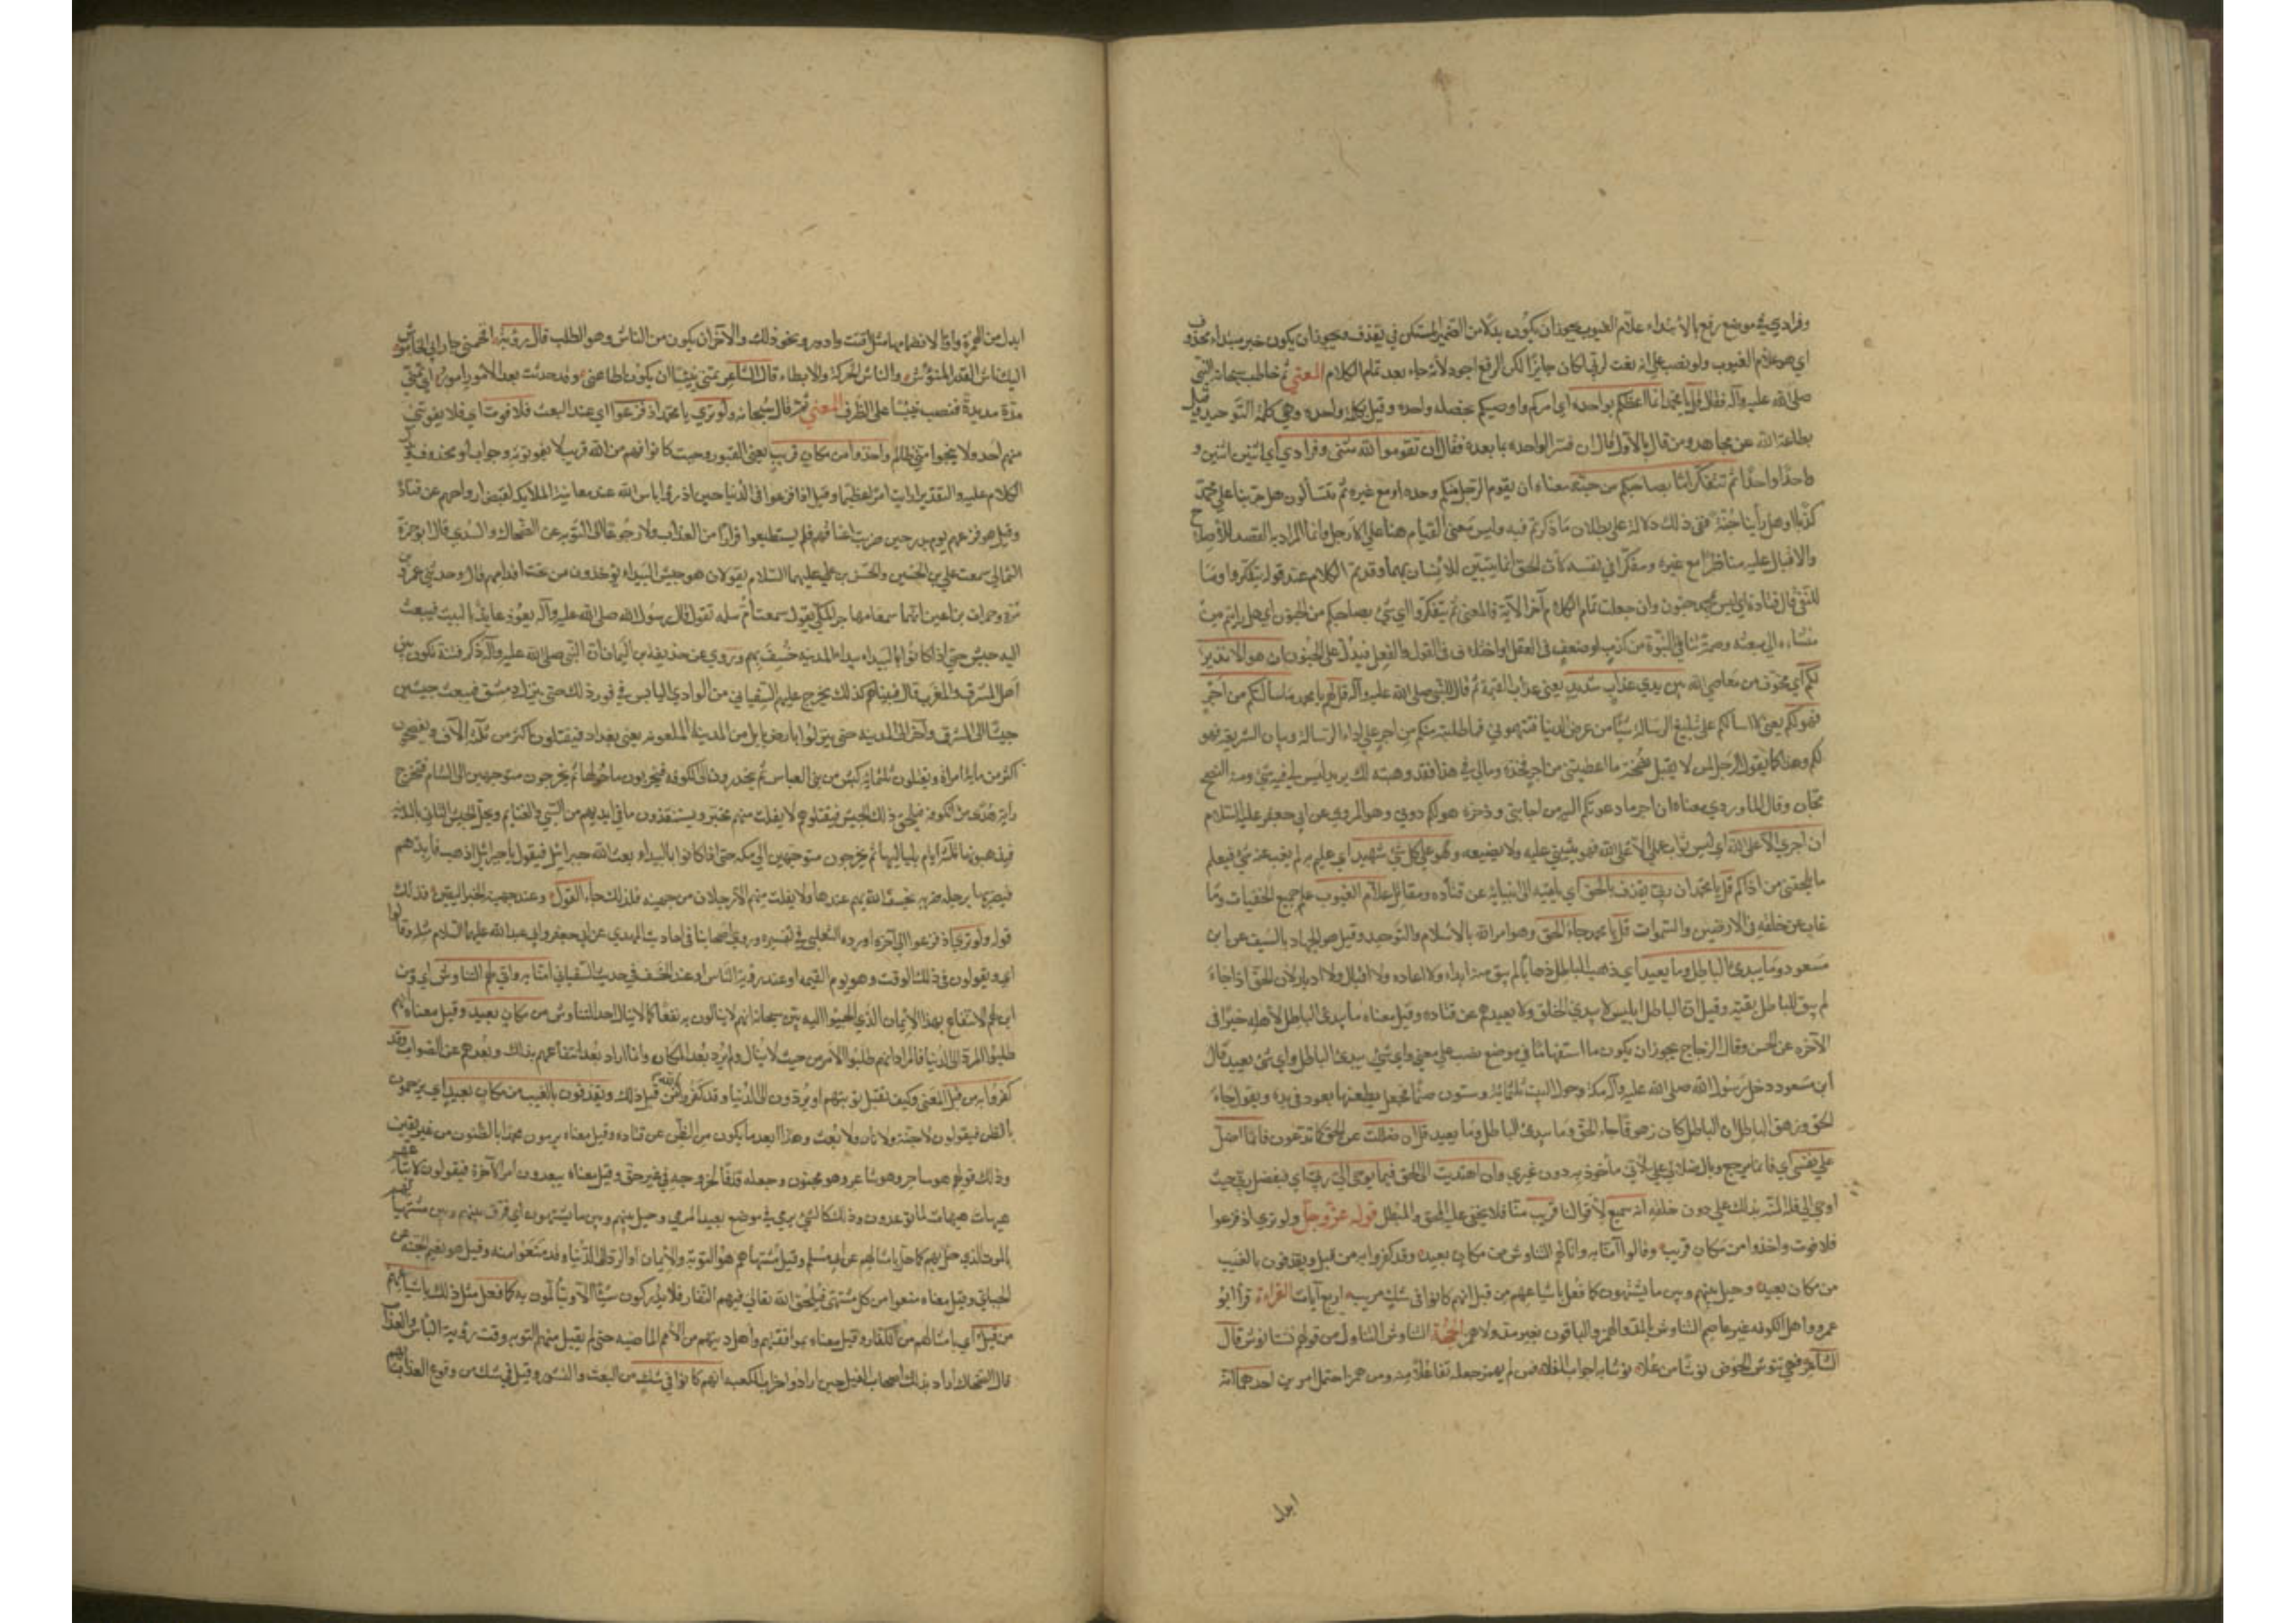 وفرادي في موضع رفع بالابتداء علّام الغيوب يجوز ان يكون بدلا من الضمير المستكن في يقذف ويجوز ان يكون خبر مبتداء محذوف
اي هو علام الغيوب ولو نصب على انه نعت لربي لكان جايزا لكن الرفع اجود لأنه جاء بعد تمام الكلام المعني ثم خاطب سبحانه النبي
صلى الله عليه وآله فقال قل يا محمد انما اعظكم بواحدة اي امركم واوصيكم بخصلة واحدة وقيل بكلمة واحدة وهي كلمة التوحيد وقيل
بطاعة الله عن مجاهد ومن قال بالاول قال ان فسر الواحدة بما بعده فقال ان تقوموا لله مثنى وفرادي اي اثنين اثنين و
واحدًا واحدًا ثم تتفكروا ما بصاحبكم من جنة معناه ان يقوم الرجل منكم وحده او مع غيره ثم تتسألون هل جربنا على محمد
كذبا او هل رأينا به جنة ففي ذلك دلالة على بطلان ما ذكرتم فيه وليس معنى القيام هنا على الارجل وانما المراد به القصد للأصلاح
والاقبال عليه مناظرا مع غيره ومفكرا في نفسه لأن الحق انما يتبين للانسان بهما وقد تم الكلام عند قوله تتفكروا وما
للنفي قال قتادة اي ليس بمحمد جنون وان جعلت تمام الكلام آخر الآية فالمعنى ثم تتفكروا اي شيء بصاحبكم من الجنون اي هل رايتم من
منشاءه الى مبعثه وصمة تنافي النبوة من كذب او ضعف في العقل او اختلاف في القول والفعل فيدل على الجنون ان هو الا نذير
لكم اي مخوف من معاصي الله بين يدي عذاب شديد يعني عذاب القيمة ثم قال للنبي صلى الله عليه وآله قل لهم يا محمد ما سألتكم من اجر
فهو لكم يعني لا اسألكم على تبليغ الرسالة شيئا من عرض الدنيا فتتهموني فما طلبت منكم من اجر على اداء الرسالة وبيان الشريعة فهو
لكم وهذا كما يقول الرجل لمن لا يقبل نصحه ما اعطيتني من اجر فخذه ومالي في هذا فقد وهبته لك يريد ليس لي فيه شيء ومنه النصح
مجان وقال الماوردي معناه ان اجر ما دعوتكم اليه من اجابتي وذخره هو لكم دوني وهو المروي عن ابي جعفر عليه السلام
ان اجري الا على الله اي ليس ثواب عملي الا على الله فهو يثيبني عليه ولا يضيعه وهو على كل شيء شهيد اي عليم به لم يغب عنه شيء فيعلم
ما يلحقني من اذاكم قل يا محمد ان ربي يقذف بالحق اي يلقيه الى انبيائه عن قتاده ومقاتل علام الغيوب علم جميع الخفيات وما
غاب عن خلقه في الارضين والسموات قل يا محمد جاء الحق وهو امر الله بالاسلام والتوحيد وقيل هو الجهاد بالسيف عن ابن
مسعود وما يبدئ الباطل وما يعيد اي ذهب الباطل ذهابا لم يبق منه ابداء ولا اعاده ولا اقبال ولا ادبار لان الحق اذا جاء
لم يبق للباطل بقية وقيل ان الباطل ابليس لا يبدئ الخلق ولا يعيدهم عن قتاده وقيل معناه ما يبدئ الباطل لأهله خيرا في
الآخرة عن الحسن وقال الزجاج يجوز ان يكون ما استفهاما في موضع نصب على معنى واي شيء يبدئ الباطل واي شيء يعيد قال
ابن مسعود دخل رسول الله صلى الله عليه وآله مكة وحول البيت ثلثمائة وستون صنما فجعل يطعنها بعود في يده ويقول جاء
الحق وزهق الباطل ان الباطل كان زهوقا جاء الحق وما يبدئ الباطل وما يعيد قل ان ضللت عن الحق كما تدعون فانما اضل
على نفسي اي فانما يرجع وبال ضلالي علي لأني مأخوذ به دون غيري وان اهتديت الى الحق فبما يوحي الي ربي اي فبفضل ربي حيث
اوحي الي فلله المنة بذلك علي دون خلقه انه سميع لأقوالنا قريب منا فلا يخفى عليه المحق والمبطل قوله عز وجل ولو تري اذ فزعوا
فلا فوت واخذوا من مكان قريب وقالوا آمنا به واني لهم التناوش من مكان بعيد وقد كفروا به من قبل ويقذفون بالغيب
من مكان بعيد وحيل بينهم وبين ما يشتهون كما فعل باشياعهم من قبل انهم كانوا في شك مريب اربع آيات القراءة قرأ ابو
عمرو واهل الكوفه غير عاصم التناوش بالمد والهمز والباقون بغير مد ولا همز الحجة التناوش التناول من قولهم نشا نوش قال
الشاعر فهي تنوش الحوض نوشا من علا نوشا به اجواب الفلا فمن لم يهمز جعله تفاعلا منه ومن همز احتمل امرين احدهما انه
ابدل
ابدل من الهمزة واوا لانضمامها مثل اقتت وادور ونحو ذلك والآخر ان يكون من الناش وهو الطلب قال رؤبة اقحمني جار ابي الخاموش
اليك ناش القدر المنؤش والناش الحركة والابطاء قال الشاعر تمنى نئيشا ان يكون اطاعني وقد حدثت بعد الامور امور اي تمنى
مدة مديدة فنصب نئيشا على الظرف المعني ثم قال سبحانه ولو تري يا محمد اذ فزعوا اي عند البعث فلا فوت اي فلا يفوتني
منهم احد ولا ينجوا مني ظالم واخذوا من مكان قريب يعني القبور وحيث كانوا فهم من الله قريب لا يفوتونه وجواب لو محذوف
الكلام عليه والتقدير لرايت امرا عظيما وقيل اذا فزعوا في الدنيا حين اذ رأوا باس الله عند معاينة الملائكة لقبض ارواحهم عن قتادة
وقيل هو فزعهم يوم بدر حين ضربت اعناقهم فلم يستطيعوا فرارا من العذاب ولا رجوعا الى التوبه عن الضحاك والسدي قال ابو حمزة
الثمالي سمعت علي بن الحسين والحسن بن علي عليهما السلام يقولان هو جيش البيداء يؤخذون من تحت اقدامهم قال وحدثني عمرو بن
مرة وحمران بن اعين انهما سمعا مهاجر المكي يقول سمعت ام سلمه تقول قال رسول الله صلى الله عليه وآله يعوذ عايذ بالبيت فيبعث
اليه جيش حتى اذا كانوا بالبيداء بيداء المدينة خسف بهم وروي عن حذيفة بن اليمان ان النبي صلى الله عليه وآله ذكر فتنة تكون بين
اهل المشرق والمغرب قال فبيناهم كذلك يخرج عليهم السفياني من الوادي اليابس في فورة ذلك حتى ينزل دمشق فيبعث جيشين
جيشا الى المشرق وآخر الى المدينة حتى ينزلوا بارض بابل من المدينة الملعونه يعني بغداد فيقتلون اكثر من ثلثة آلاف ويفضحون
اكثر من مأية امرأة ويقتلون ثلثماية كبش من بني العباس ثم ينحدرون الى الكوفه فيخربون ما حولها ثم يخرجون متوجهين الى الشام فتخرج
راية هدى من الكوفه فيلحق ذلك الجيش فيقتلوهم لا يفلت منهم مخبر ويستنقذون ما في ايديهم من السبي والغنايم ويحل الجيش الثاني بالمدينة
فينهبونها ثلثة ايام بلياليها ثم يخرجون متوجهين الى مكه حتى اذا كانوا بالبيداء بعث الله جبرائيل فيقول يا جبرائيل اذهب فأبدهم
فيضربها برجله ضربة يخسف الله بهم عندها ولا يفلت منهم الا رجلان من جهينه فلذلك جاء القول وعند جهينة الخبر اليقين فذلك
قوله ولو تري اذ فزعوا الى آخره اورده الثعلبي في تفسيره وروي اصحابنا في احاديث المهدي عن ابي جعفر وابي عبد الله عليهما السلام مثله وقالوا
اي ويقولون في ذلك الوقت وهو يوم القيمه او عند رؤية الناس او عند الخسف في حديث السفياني امنا به واني لهم التناوش اي ومن
اين لهم الانتفاع بهذا الايمان الذي الجئوا اليه بين سبحانه انهم لا ينالون به نفعا كما لا ينال احد التناوش من مكان بعيد وقيل معناه انهم
طلبوا المرد الى الدنيا فالمراد انهم طلبوا الامر من حيث لا ينال ولم يرد بعد المكان وانما اراد بعد انتفاعهم بذلك وبعدهم عن الصواب وقد
كفروا به من قبل المعنى وكيف تقبل توبتهم او يردون الى الدنيا وقد كفروا بالله من قبل ذلك ويقذفون بالغيب من مكان بعيد اي يرجمون
بالظن فيقولون لا جنة ولا نار ولا بعث وهذا ابعد ما يكون من الظن عن قتاده وقيل معناه يرمون محمدا بالظنون من غير يقين
وذلك قولهم هو ساحر وهو شاعر وهو مجنون وجعله قذفا لخروجه في غير حق وقيل معناه يبعدون امر الآخرة فيقولون لاتباعهم
هيهات هيهات لما توعدون وذلك كالشيء يرمي في موضع بعيد المرمي وحيل بينهم وبين ما يشتهون اي فرق بينهم وبين مشتهياتهم
بالموت الذي حل بهم كما حل بامثالهم عن ابي مسلم وقيل مشتهاهم هو التوبة والايمان او الرد الى الدنيا وقد منعوا منه وقيل هو نعيم الجنة عن
الجبائي وقيل معناه منعوا من كل مشتهى فيلحق الله تعالي فيهم النفار فلا يدركون شيئا الا ويتألمون به كما فعل مثل ذلك باشياعهم
من قبل اي بامثالهم من الكفار وقيل معناه بموافقيهم واهل دينهم من الأمم الماضيه حين لم يقبل منهم التوبه وقت رؤية البأس والعذاب
قال الضحاك اراد بذلك اصحاب الفيل حين ارادوا خراب الكعبه انهم كانوا في شك من البعث والنشور وقيل في شك من وقوع العذاب بهم